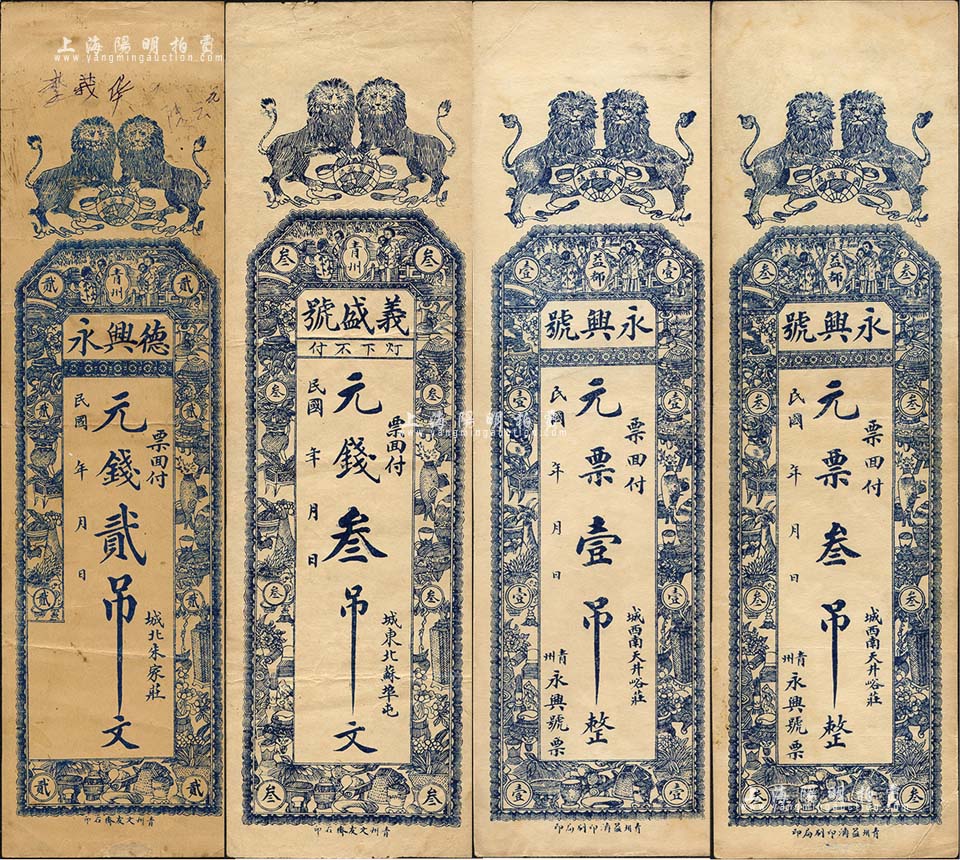 上海陽明拍賣
www.yangmingauction.com
李義华
貳
青州
貳
德興永
票面付
元錢貳吊文
民國 年 月 日
城北朱家莊
貳
貳
貳
貳
貳
貳
青州文友齋石印
上海陽明拍賣
www.yangmingauction.com
叁
青州
叁
義盛號
灯下不付
票面付
元錢叁吊文
民國 年 月 日
城東北蘇埠屯
叁
叁
叁
叁
叁
叁
青州文友齋石印
壹
益都
壹
永興號
票面付
元票壹吊整
民國 年 月 日
城西南天井峪莊
青州永興號票
壹
壹
壹
壹
壹
壹
青州益濟印刷局印
叁
益都
叁
永興號
票面付
元票叁吊整
民國 年 月 日
城西南天井峪莊
青州永興號票
叁
叁
叁
叁
叁
叁
青州益濟印刷局印
上海陽明拍賣
www.yangmingauction.com
上海陽明拍賣
www.yangmingauction.com